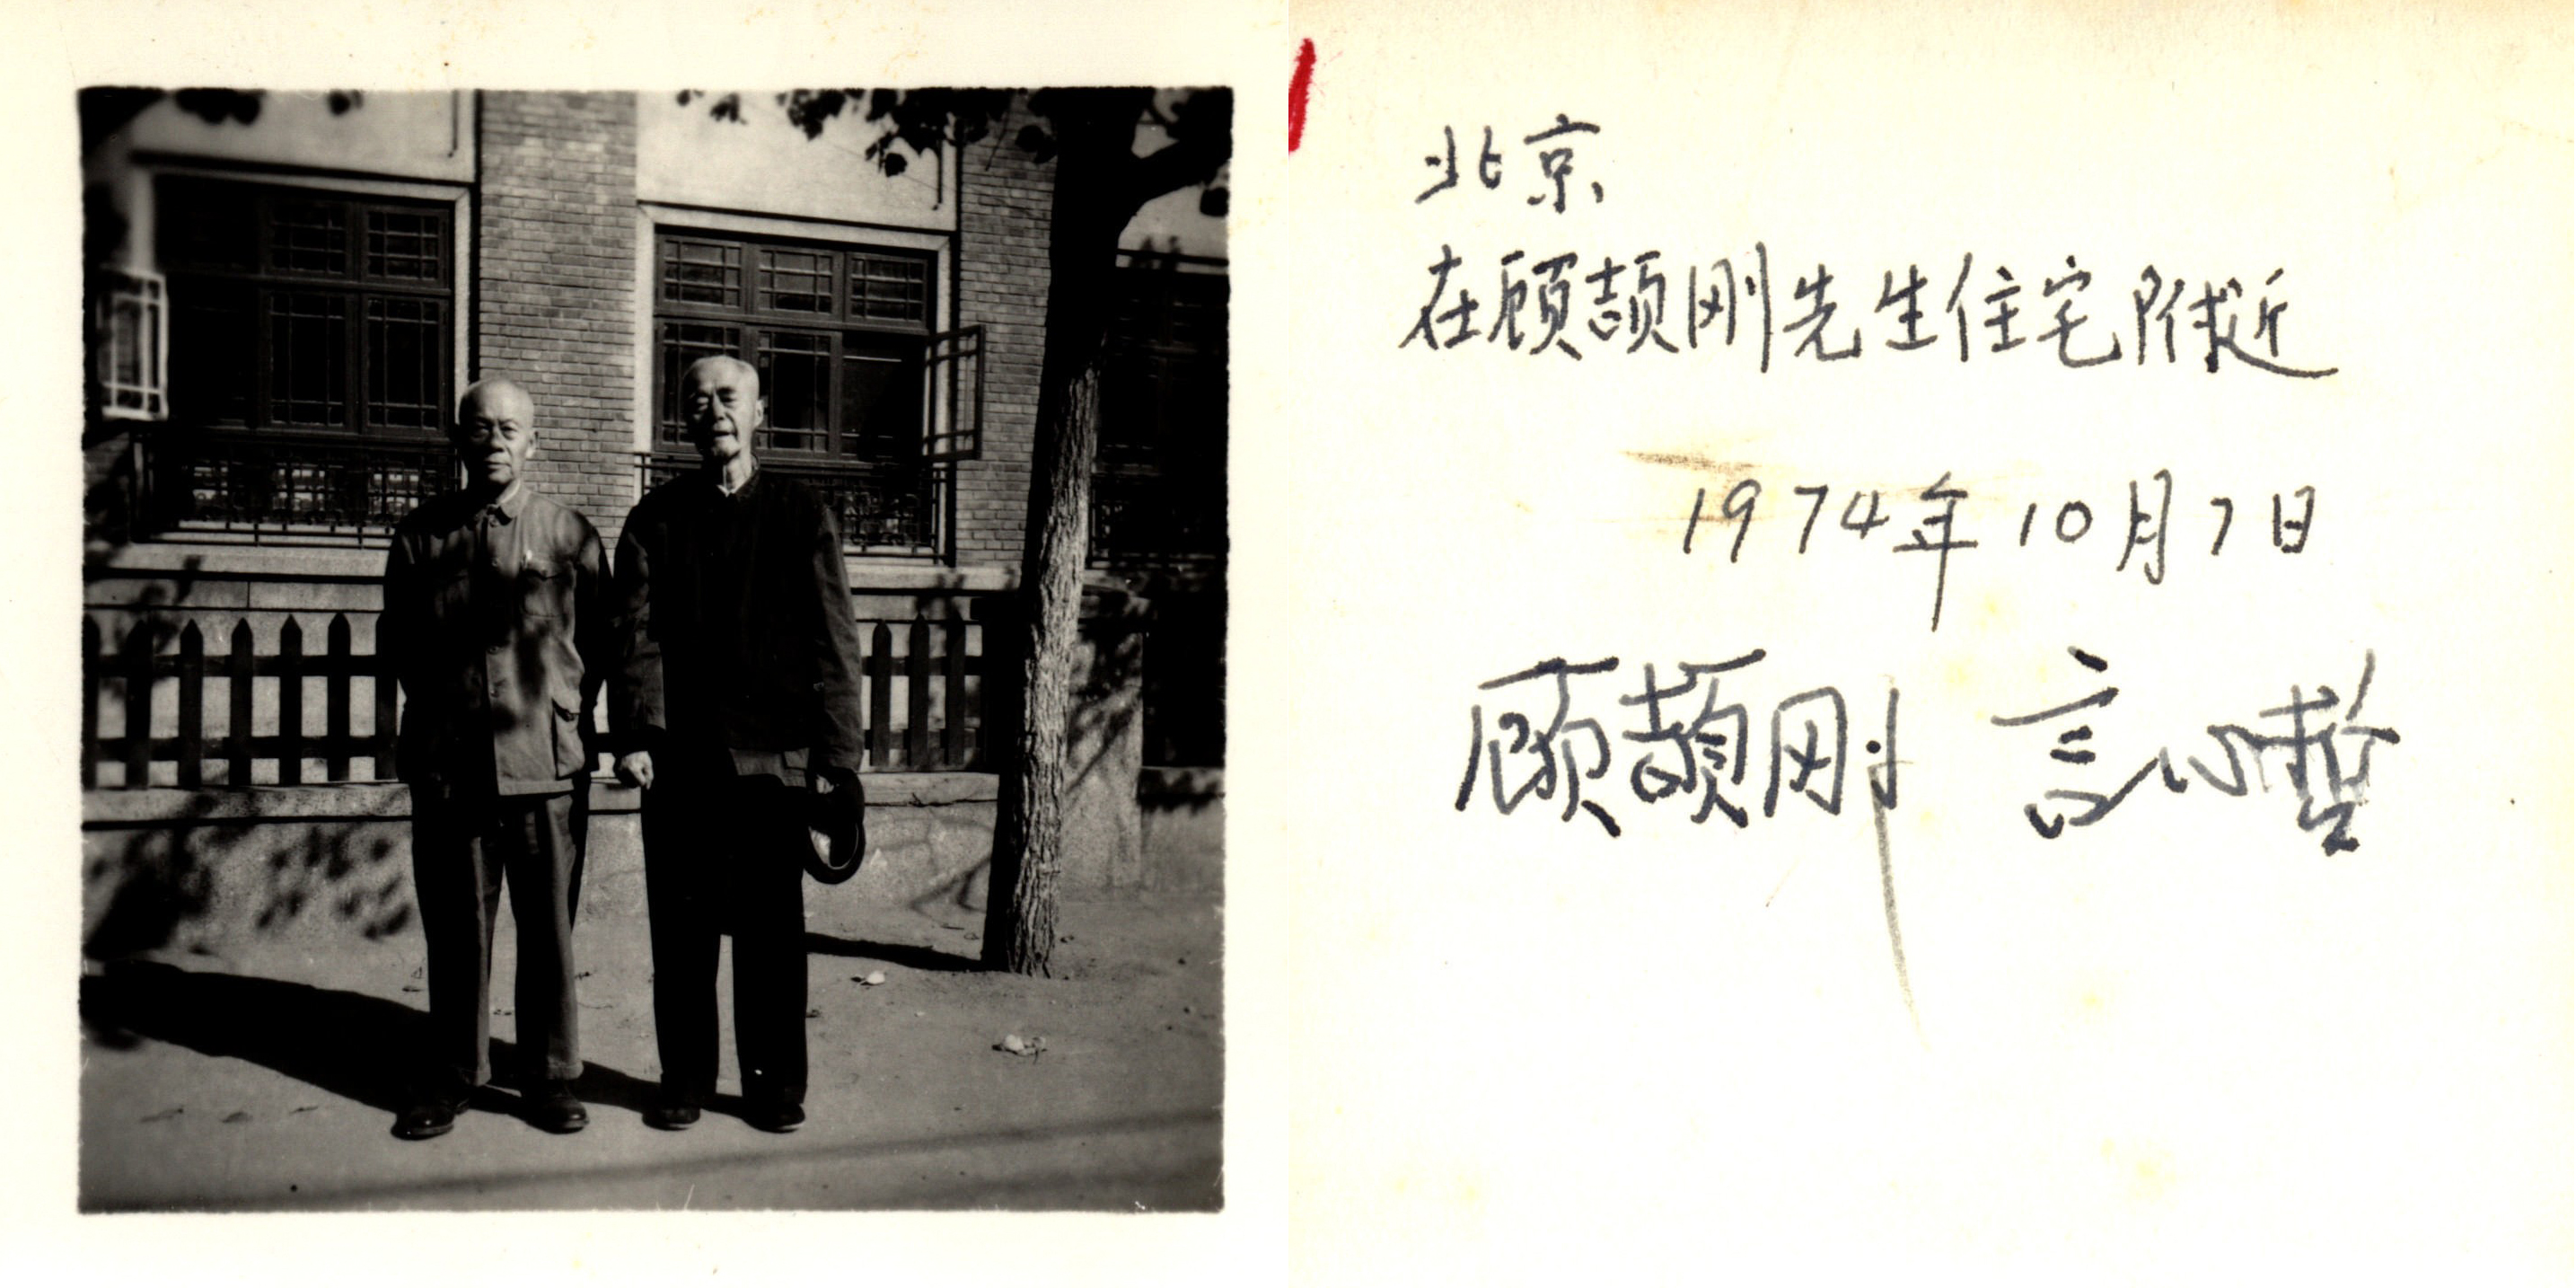 北京
在顾颉刚先生住宅附近
1974年10月7日
顾颉刚 言心哲